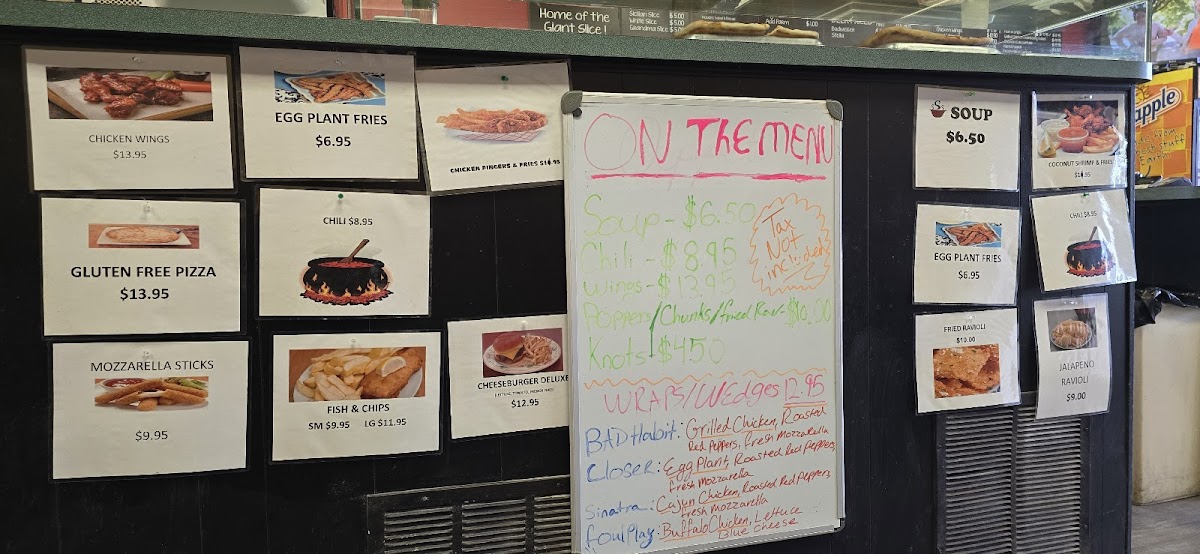 Home of the
Giant Slice!
Sicilian Slice $5.00
White Slice $5.00
Grandma Slice $5
CHICKEN WINGS
$13.95
EGG PLANT FRIES
$6.95
CHICKEN FINGERS & FRIES
GLUTEN FREE PIZZA
$13.95
CHILI $8.95
MOZZARELLA STICKS
$9.95
FISH & CHIPS
SM $9.95 LG $11.95
CHEESEBURGER DELUXE
$12.95
ON THE MENU
Soup - $6.50
Chili - $8.95
Wings - $13.95
Tax
NOT
included
POPPERS/Chunks/fried Rav - $10.00
Knots $4.50
WRAPS/Wedges 12.95
BAD Habit: Grilled Chicken, Roasted
Red Peppers, Fresh Mozzarella
Closer: Egg Plant, Roasted Red Peppers,
Fresh Mozzarella
Sinatra: Cajun Chicken, Roasted Red Peppers,
Fresh Mozzarella
Foul Play: Buffalo Chicken, Lettuce
Blue Cheese
SOUP
$6.50
COCONUT SHRIMP & FRIES
EGG PLANT FRIES
$6.95
CHILI $8.95
FRIED RAVIOLI
$10.00
JALAPENO
RAVIOLI
$9.00
apple